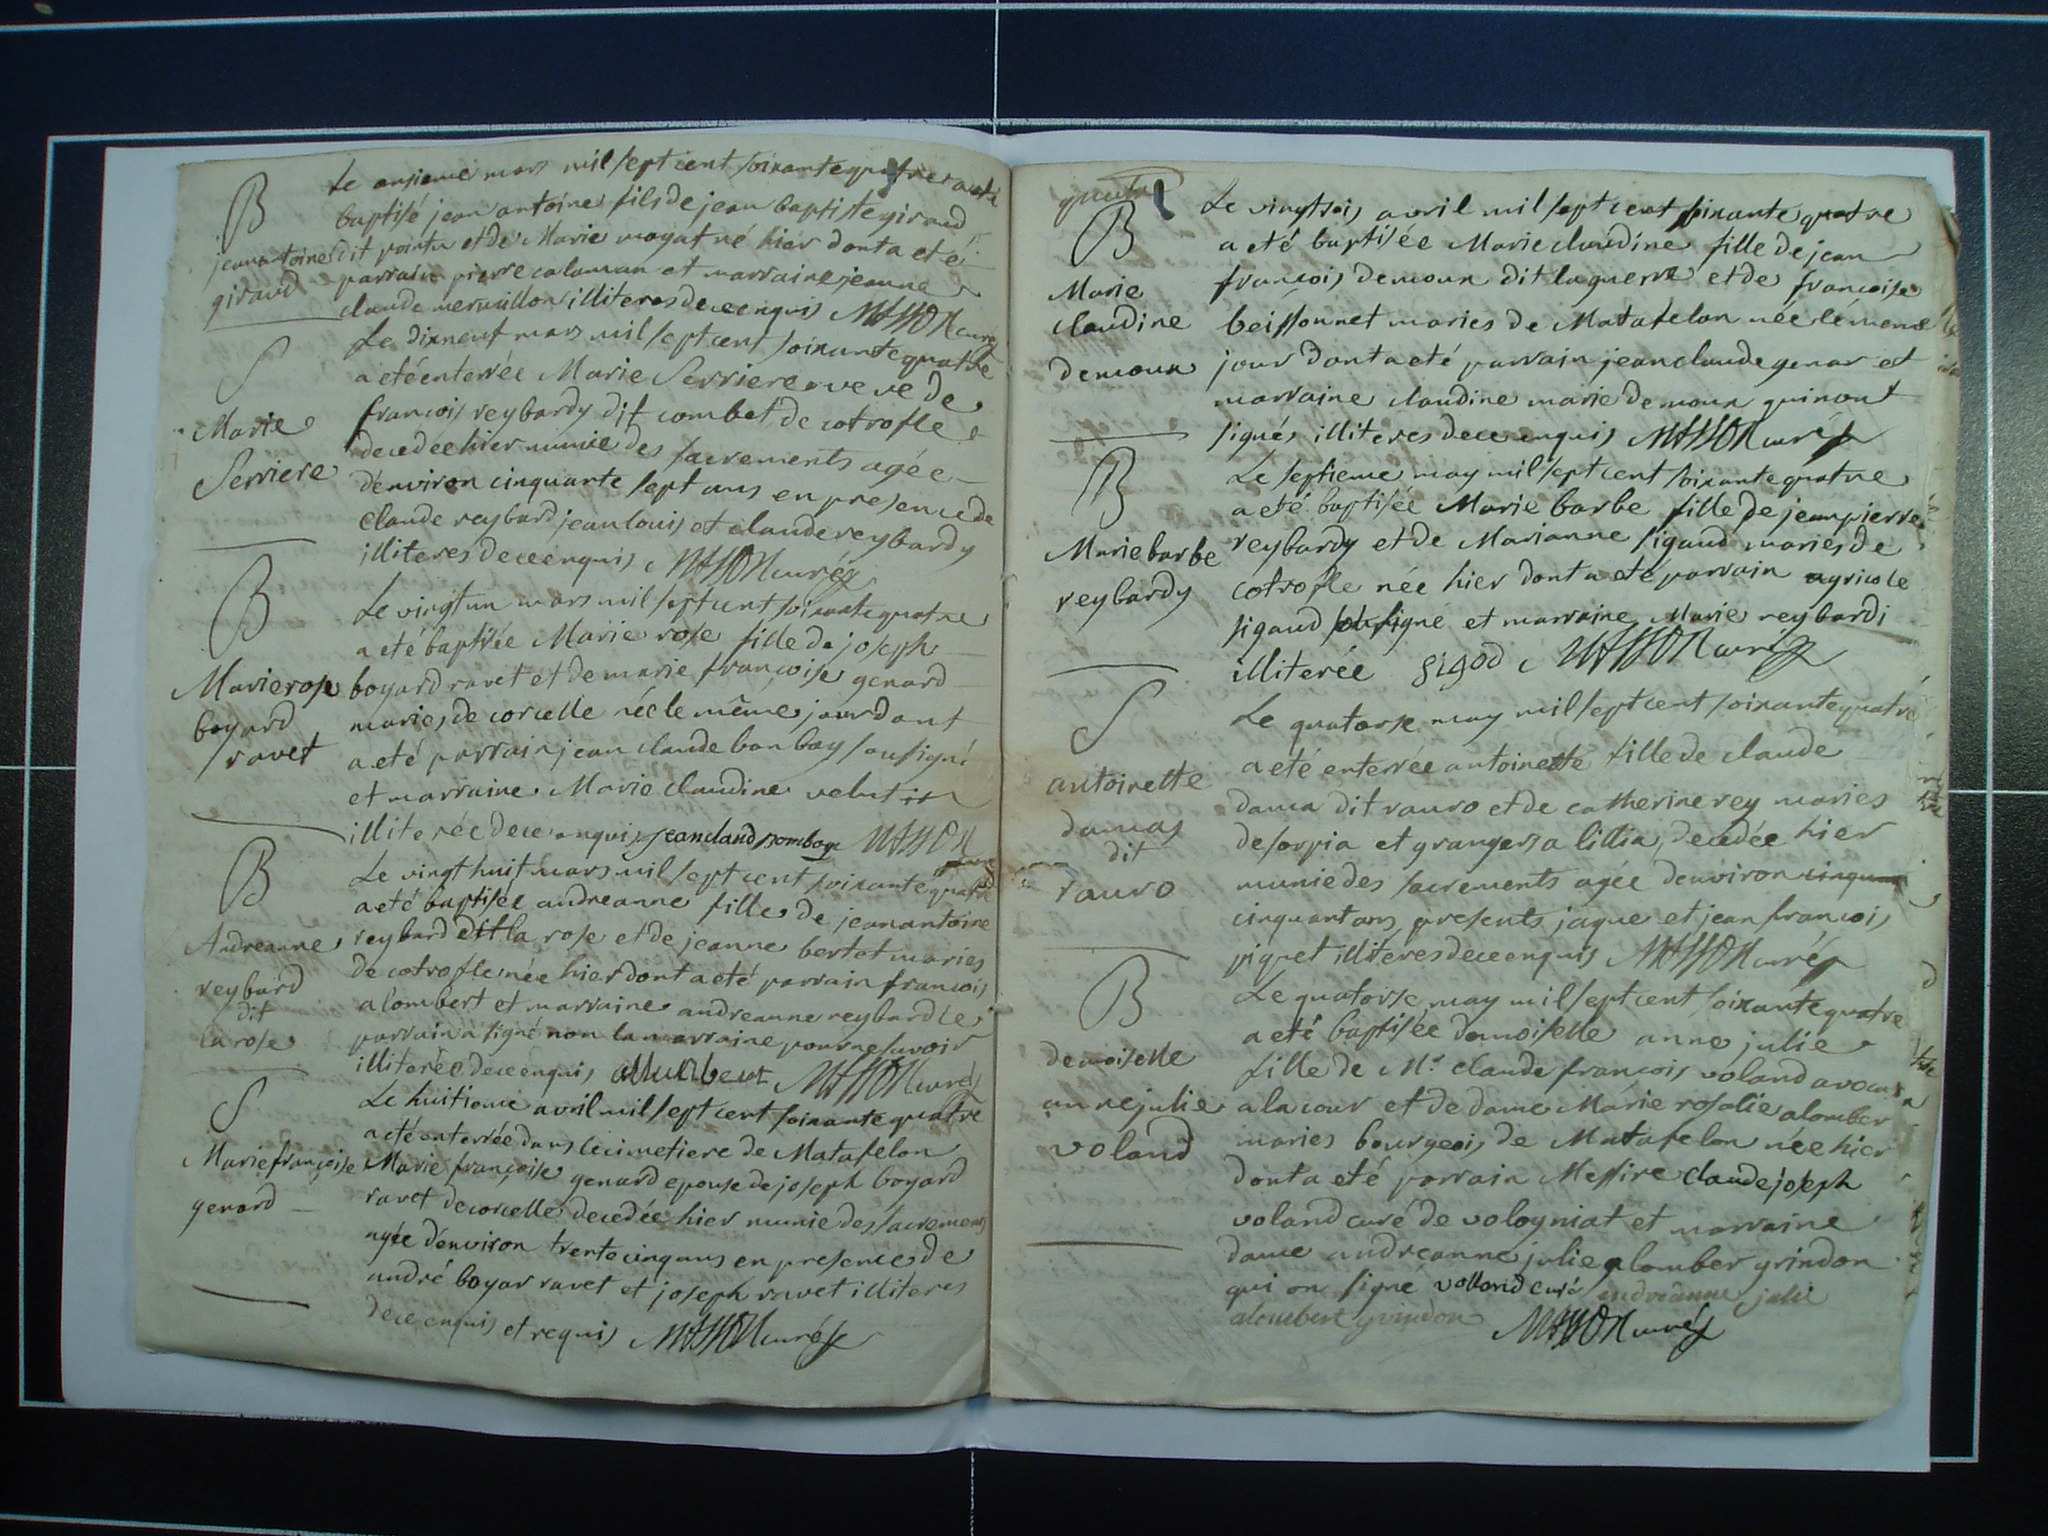 B
jeanantoine
giraud
Le onsieme mars mil sept cent soixante quatre a eté
baptisé jean antoine fils de jean baptiste giraud
dit pointu et de Marie mogat né hier dont a eté
parrain pierre calaman et marraine jeanne
claude mervaillon illiteres de ce enquis MASSON curé
S
Marie
Serriere
Le dixneuf mars mil sept cent soixante quatre
a eté enterrée Marie Serriere veve de
francois reybardy dit combet de cotrofle
decedee hier munie des sacrements agée
d'environ cinquante sept ans en presence de
Claude reybard jean louis et claude reybardy
illiteres de ce enquis MASSON curé
B
Marie rose
boyard
ravet
Le vingt un mars mil sept cent soixante quatre
a eté baptisée Marie rose fille de joseph
boyard ravet et de marie françoise genard
maries de corcelle née le même jour dont
a eté parrain jean claude bonbay sousigné
et marraine Marie claudine velut
illiterée de ce enquis jean claud bombay MASSON
curé
B
Andreanne
reybard
dit
la rose
Le vingt huit mars mil sept cent soixante quatre
a eté baptisée andreanne fille de jean antoine
reybard dit la rose et de jeanne bertet maries
de cotrofle née hier dont a eté parrain francois
alombert et marraine andreanne reybard le
parrain a signé non la marraine pour ne savoir
illiterée de ce enquis allumbert MASSON curé
S
Marie françoise
genard
Le huitieme avril mil sept cent soixante quatre
a eté enterrée dans le cimetiere de Matafelon
Marie françoise genard epouse de joseph boyard
ravet de corcelle decedée hier munie des sacremens
agée d'environ trente cinq ans en presence de
andré boyar ravet et joseph ravet illiteres
de ce enquis et requis MASSON curé
B
Marie
claudine
demoux
Le vingt trois avril mil sept cent soixante quatre
a eté baptisée Marie claudine fille de jean
francois demoux dit laguerre et de francoise
beissonnet maries de Matafelon née le meme
jour dont a eté parrain jean claude genar et
marraine claudine marie demoux qui n'ont
signés illiteres de ce enquis MASSON curé
B
Marie barbe
reybardy
Le septieme may mil sept cent soixante quatre
a eté baptisée Marie barbe fille de jean pierre
reybardy et de Marianne sigaud maries de
cotrofle née hier dont a eté parrain agricole
sigaud sousigné et marraine Marie reybardi
illiterée sigod MASSON curé
S
antoinette
damas
dit
rauro
Le quatorse may mil sept cent soixante quatre
a eté enterrée antoinette fille de claude
dama dit rauro et de catherine rey maries
de sorpia et grangers a lillia, decedée hier
munie des sacrements agée d'environ cinquan
cinquant ans presents jaque et jean francois
piquet illiteres de ce enquis MASSON curé
B
demoiselle
anne julie
voland
Le quatorse may mil sept cent soixante quatre
a eté baptisée demoiselle anne julie
fille de Mr claude francois voland avocat
a la cour et de dame Marie rosalie alomber
maries bourgeois de Matafelon née hier
dont a eté parrain Messire claude joseph
voland curé de volognat et marraine
dame andreanne julie alomber grindon
qui on signé volland curé andréanne julie
alombert grindon MASSON curé